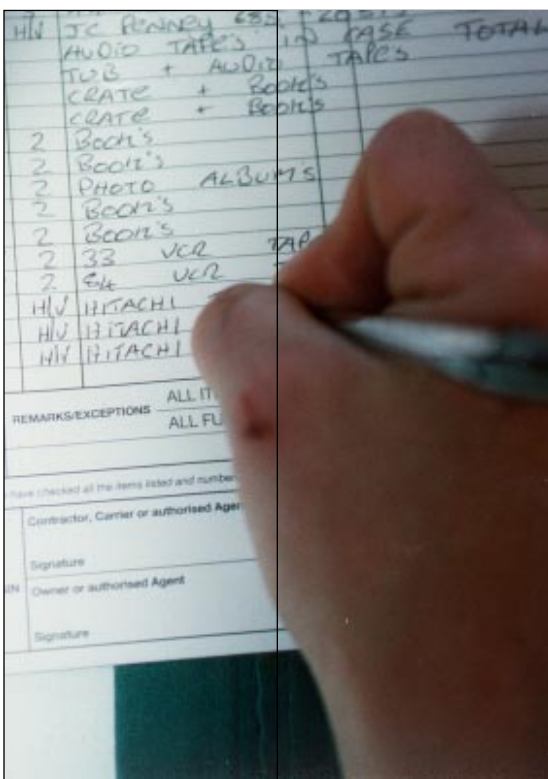 H/V JC PENNEY
AUDIO TAPE'S IN CASE TOTAL
TUB + AUDIO TAPES
CRATE + BOOK'S
CRATE + BOOK'S
2 BOOK'S
2 BOOK'S
2 PHOTO ALBUM'S
2 BOOK'S
2 BOOK'S
2 33 VCR TAP
2 84 VCR
H/V HITACHI
H/V HITACHI
H/V HITACHI
REMARKS/EXCEPTIONS ALL IT
ALL FU
have checked all the items listed and number
Contractor, Carrier or authorised Agen
Signature
Owner or authorised Agent
Signature